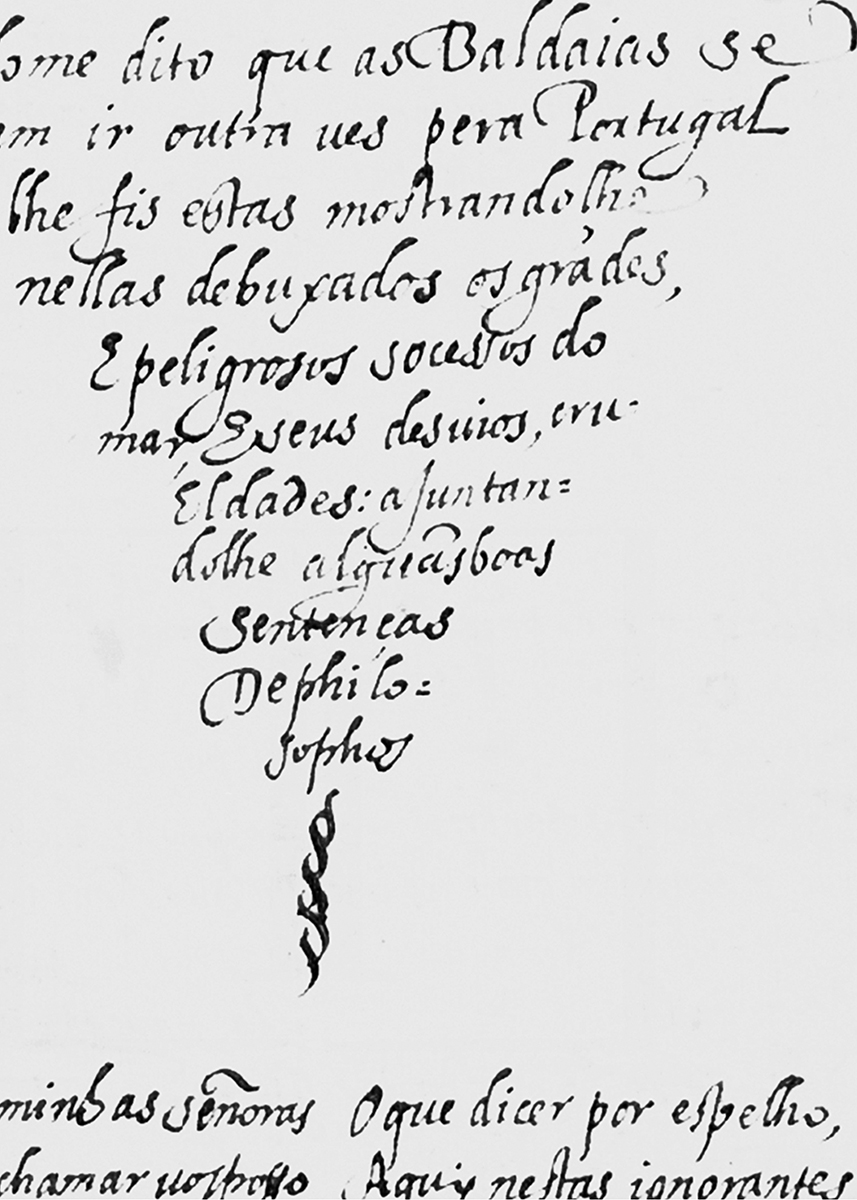 ome dito que as Baldaias se
em ir outra ves pera Portugal
lhe fis estas mostrandolhe
nellas debuxados os grãdes,
E peligrosos socessos do
mar, E seus desuios, cru-
Eldades: ajuntan=
dolhe alguãs boas
sentenças
De philo=
sophos
minhas señoras O que dicer por espelho,
chamar uos posso Aqui nestas ignorantes